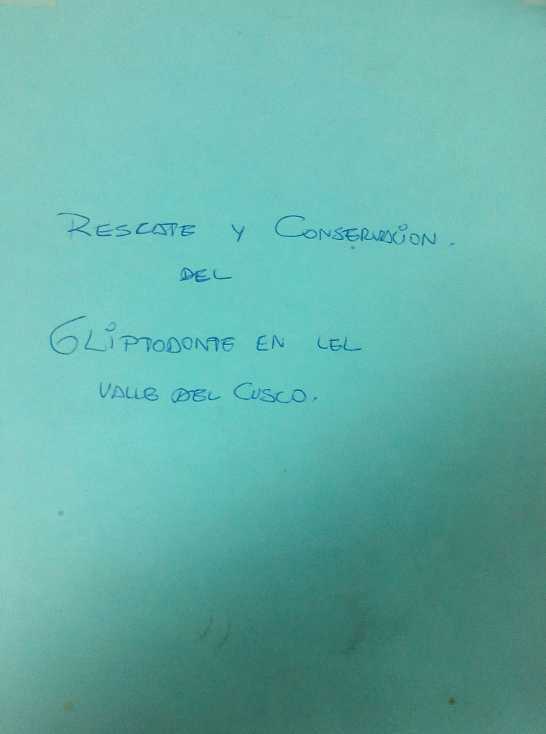 RESCATE Y CONSERVACiON.
DEL
GLiPTODONTE EN LEL
VALLE DEL CUSCO.